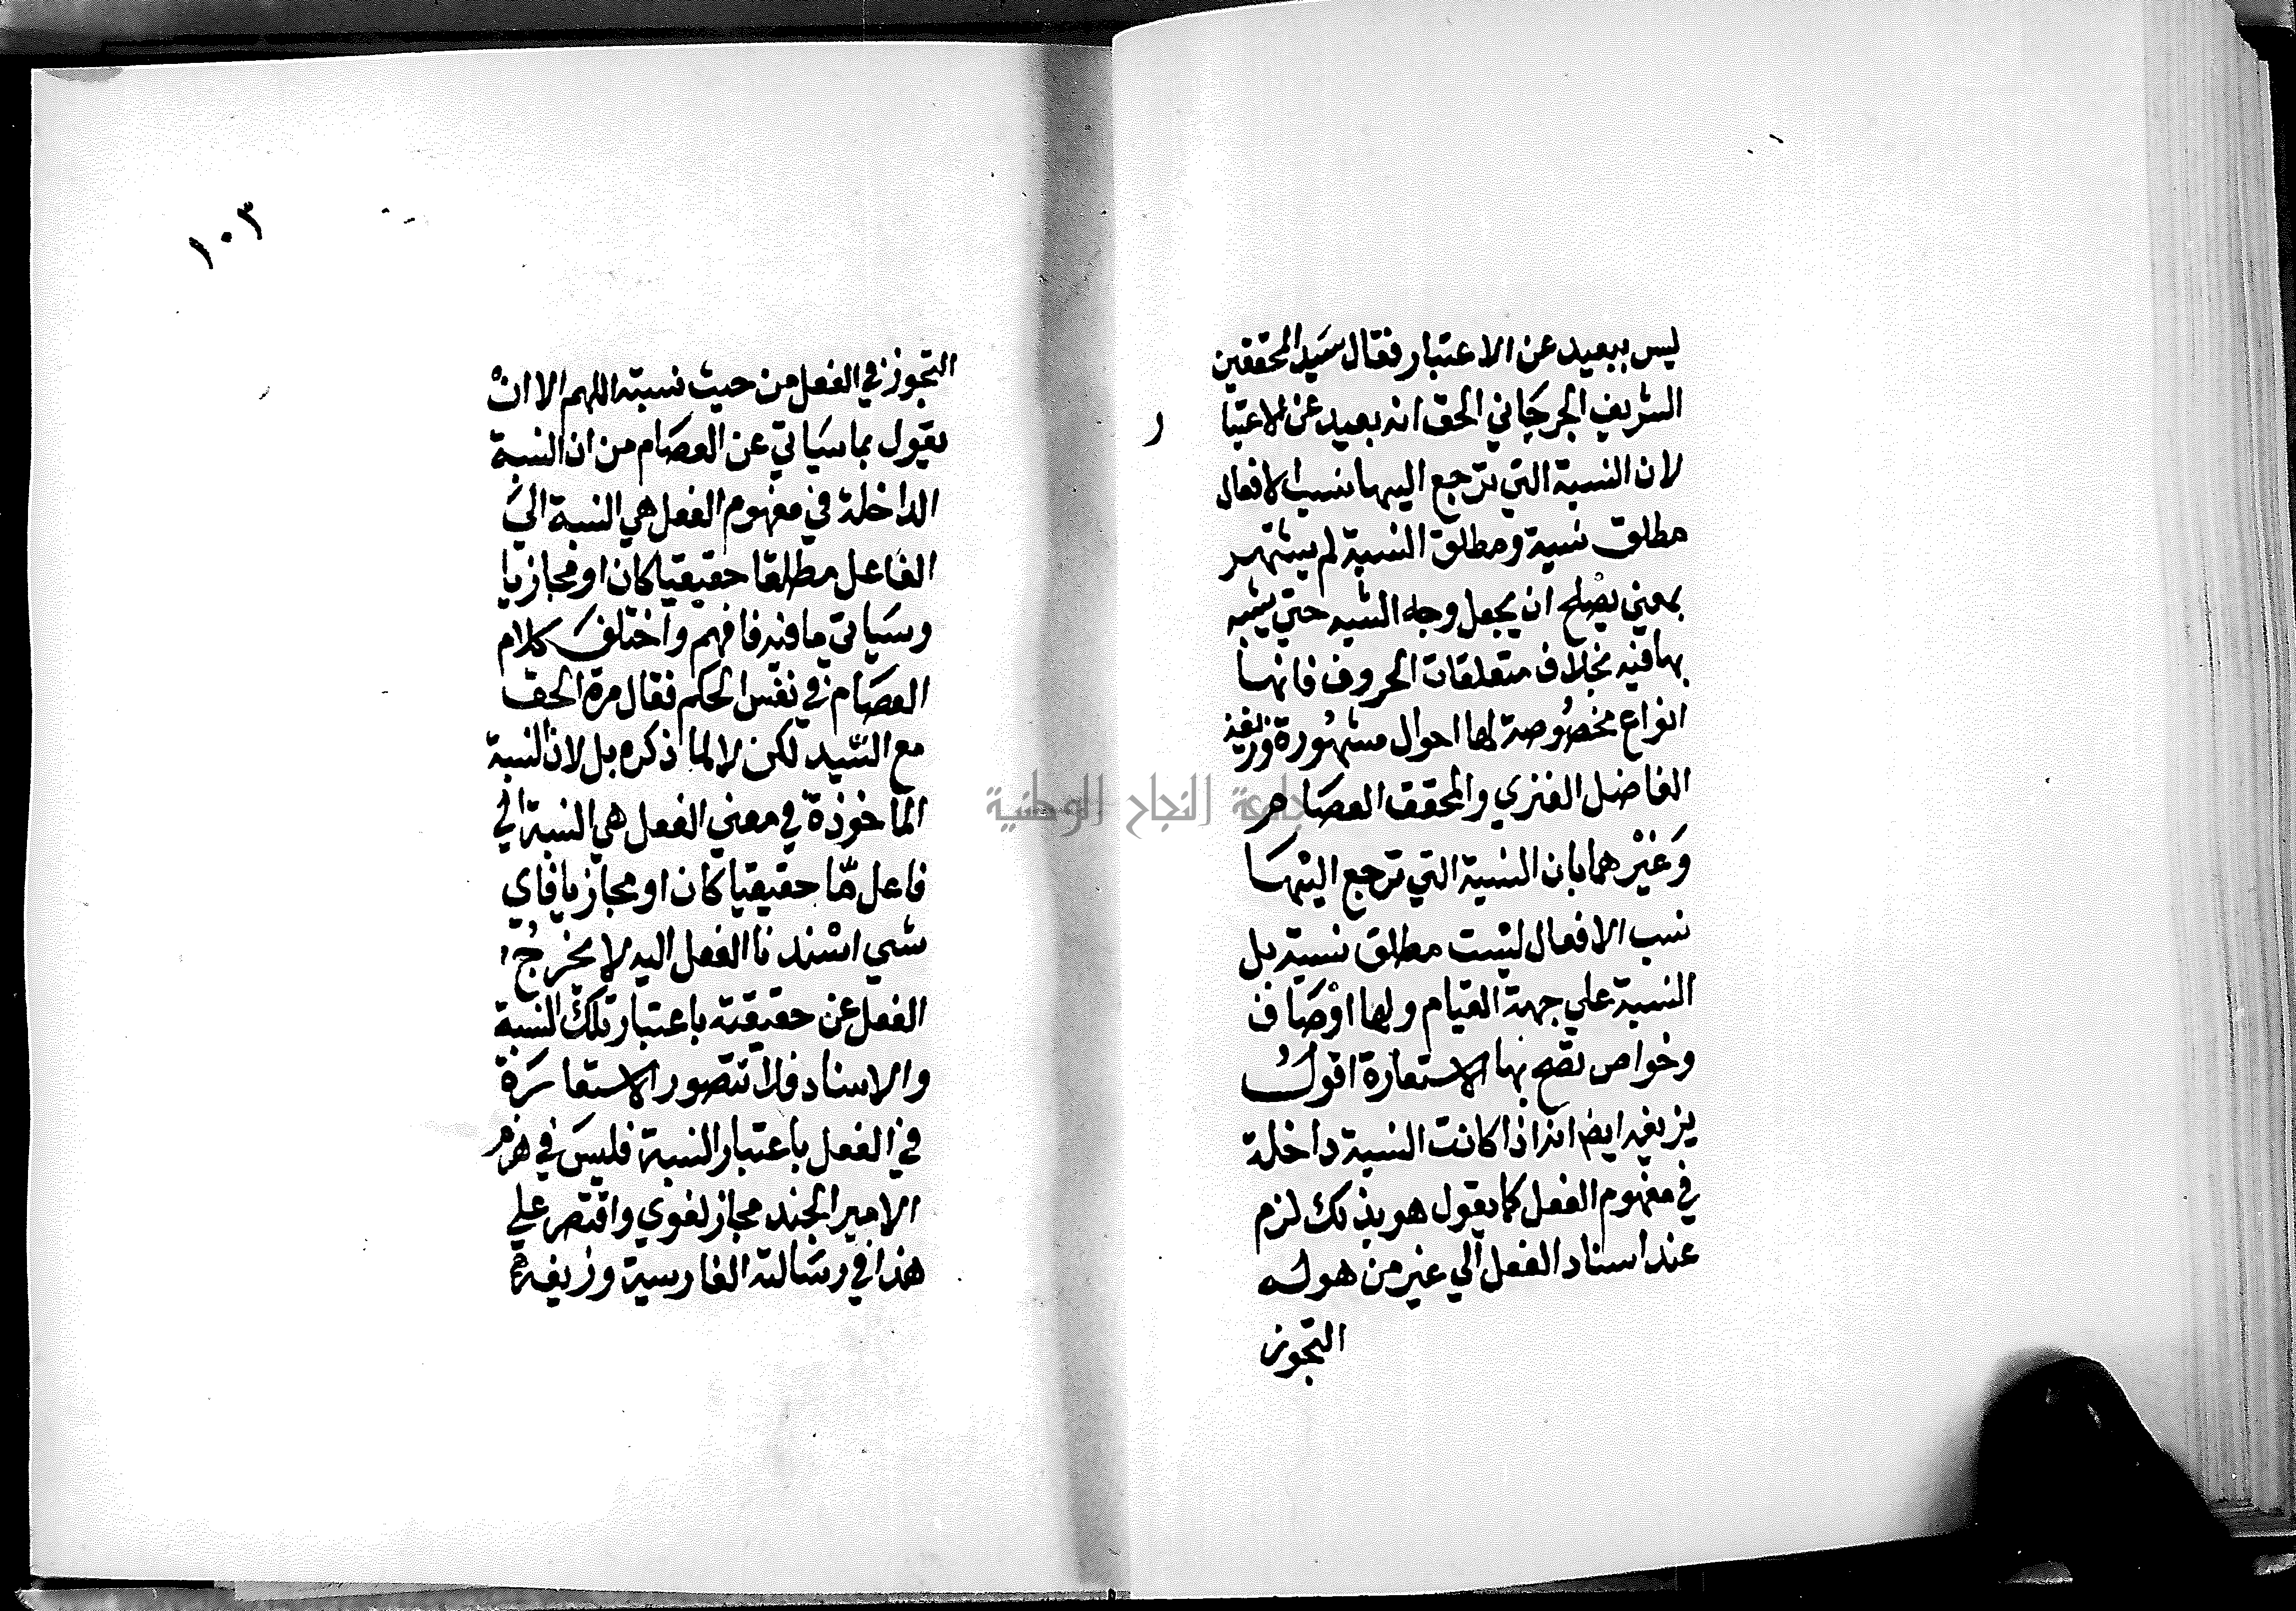 ليس ببعيد عن الاعتبار فقال سيد المحققين
الشريف الجرجاني الحق انه بعيد عن الاعتبا
ر
لان النسبة التي ترجع اليها نسب الافعال
مطلق نسبة ومطلق النسبة لم يشتهر
بمعني يصلح ان يجعل وجه الشبه حتي يشبه
بها فيه بخلاف متعلقات الحروف فانها
انواع مخصوصة لها احوال مشهورة وزيفه
الفاضل الفنري والمحقق العصام
وغيرهما بان النسبة التي ترجع اليها
نسب الافعال ليست مطلق نسبة بل
النسبة علي جهة القيام ولها اوصاف
وخواص تصح بها الاستعارة اقول
يزيفه ايضا انه اذا كانت النسبة داخلة
في مفهوم الفعل كما يقول هو بذلك لزم
عند اسناد الفعل الي غير من هو له
التجوز
١٠٣
التجوز في الفعل من حيث نسبته اللهم الا ان
يقول بما سياتي عن العصام من ان النسبة
الداخلة في مفهوم الفعل هي النسبة الي
الفاعل مطلقا حقيقيا كان او مجازيا
وسياتي ما فيه فافهم واختلف كلام
العصام في نفس الحكم فقال مرة الحق
مع السيد لكن لا لما ذكره بل لان النسبة
الماخوذة في معني الفعل هي النسبة الي
فاعل ما حقيقيا كان او مجازيا فاي
شي اسندنا الفعل اليه لا يخرج
الفعل عن حقيقته باعتبار تلك النسبة
والاسناد فلا تتصور الاستعارة
في الفعل باعتبار النسبة فليس في هزم
الامير الجند مجاز لغوي واقتصر علي
هذا في رسالته الفارسية وزيفه
جامعة النجاح الوطنية